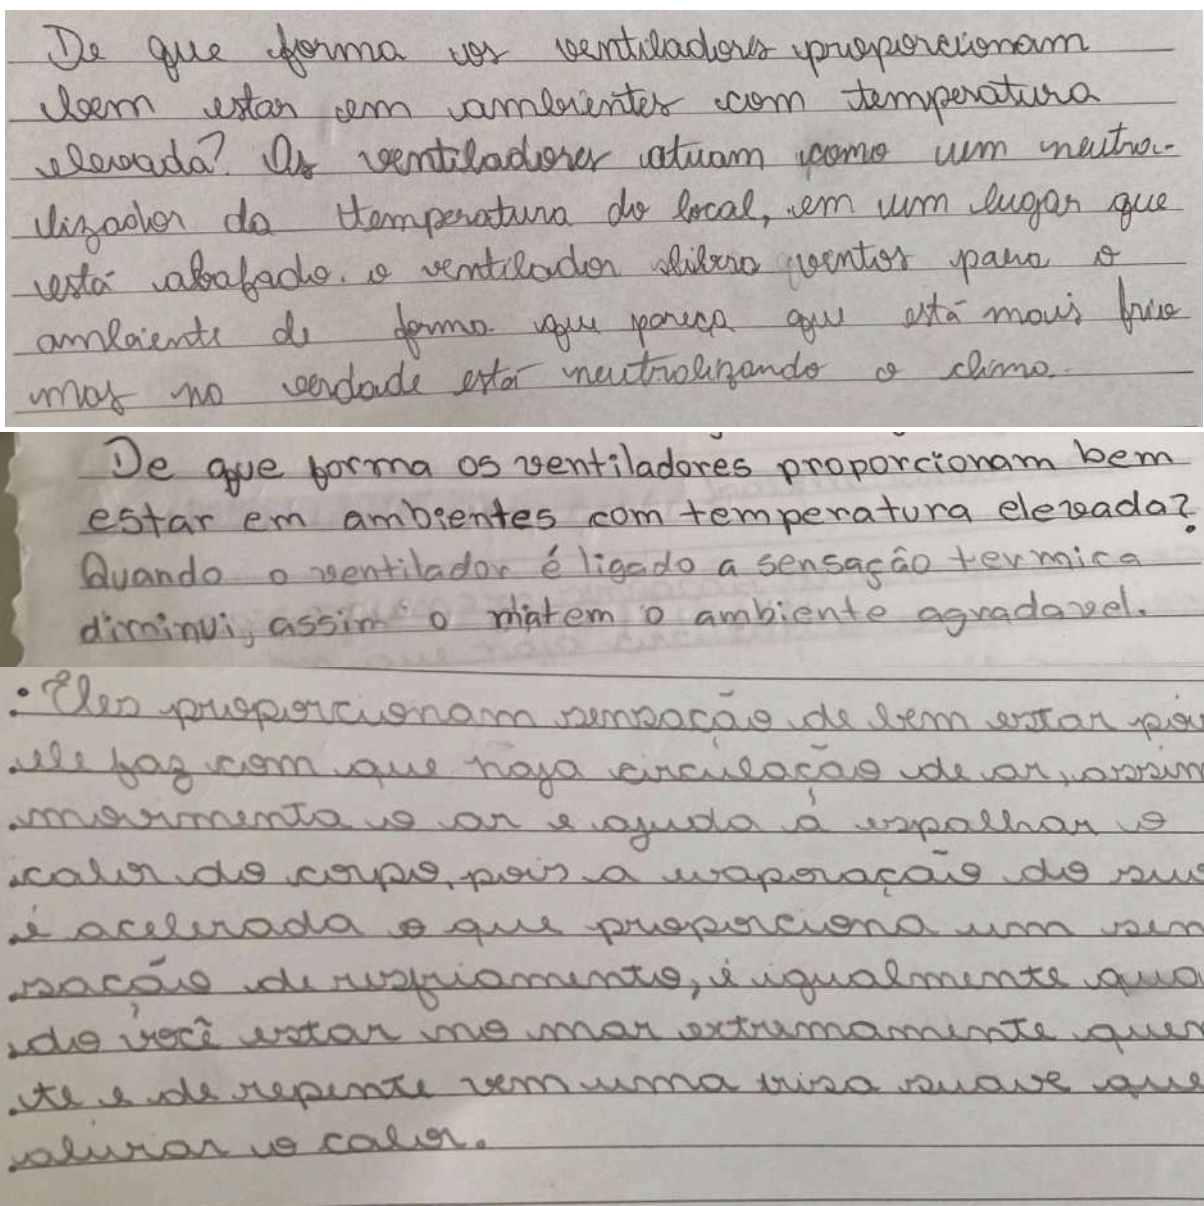 De que forma os ventiladores proporcionam
bem estar em ambientes com temperatura
elevada? Os ventiladores atuam como um neutra-
lizador da temperatura do local, em um lugar que
está abafado. o ventilador libera ventos para o
ambiente de forma que pareça que está mais frio
mas na verdade está neutralizando o clima.
De que forma os ventiladores proporcionam bem
estar em ambientes com temperatura elevada?
Quando o ventilador é ligado a sensação termica
diminui, assim o mátem o ambiente agradavel.
• Eles proporcionam sensação de bem estar poi
ele faz com que haja circulação de ar, assim
movimenta o ar e ajuda á espalhar o
calor do corpo, pois a evaporação do suo
é acelerada o que proporciona um sen
sação de resfriamento, é igualmente qua
do você estar no mar extremamente quen
te e de repente vem uma brisa suave que
aliviar o calor.